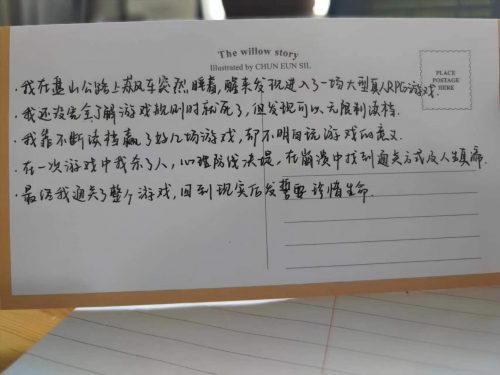 The willow story
Illustrated by CHUN EUN SIL
PLACE
POSTAGE
HERE
·我在盘山公路上飙车突然睡着,醒来发现进入了一场大型真人RPG游戏.
·我还没完全了解游戏规则时就死了,但发现可以无限制读档.
·我靠不断读档赢了好几场游戏,却不明白玩游戏的意义.
·在一次游戏中我杀了人,心理防线决堤,在崩溃中找到通关方式及人生真谛.
·最后我通关了整个游戏,回到现实后发誓要珍惜生命.